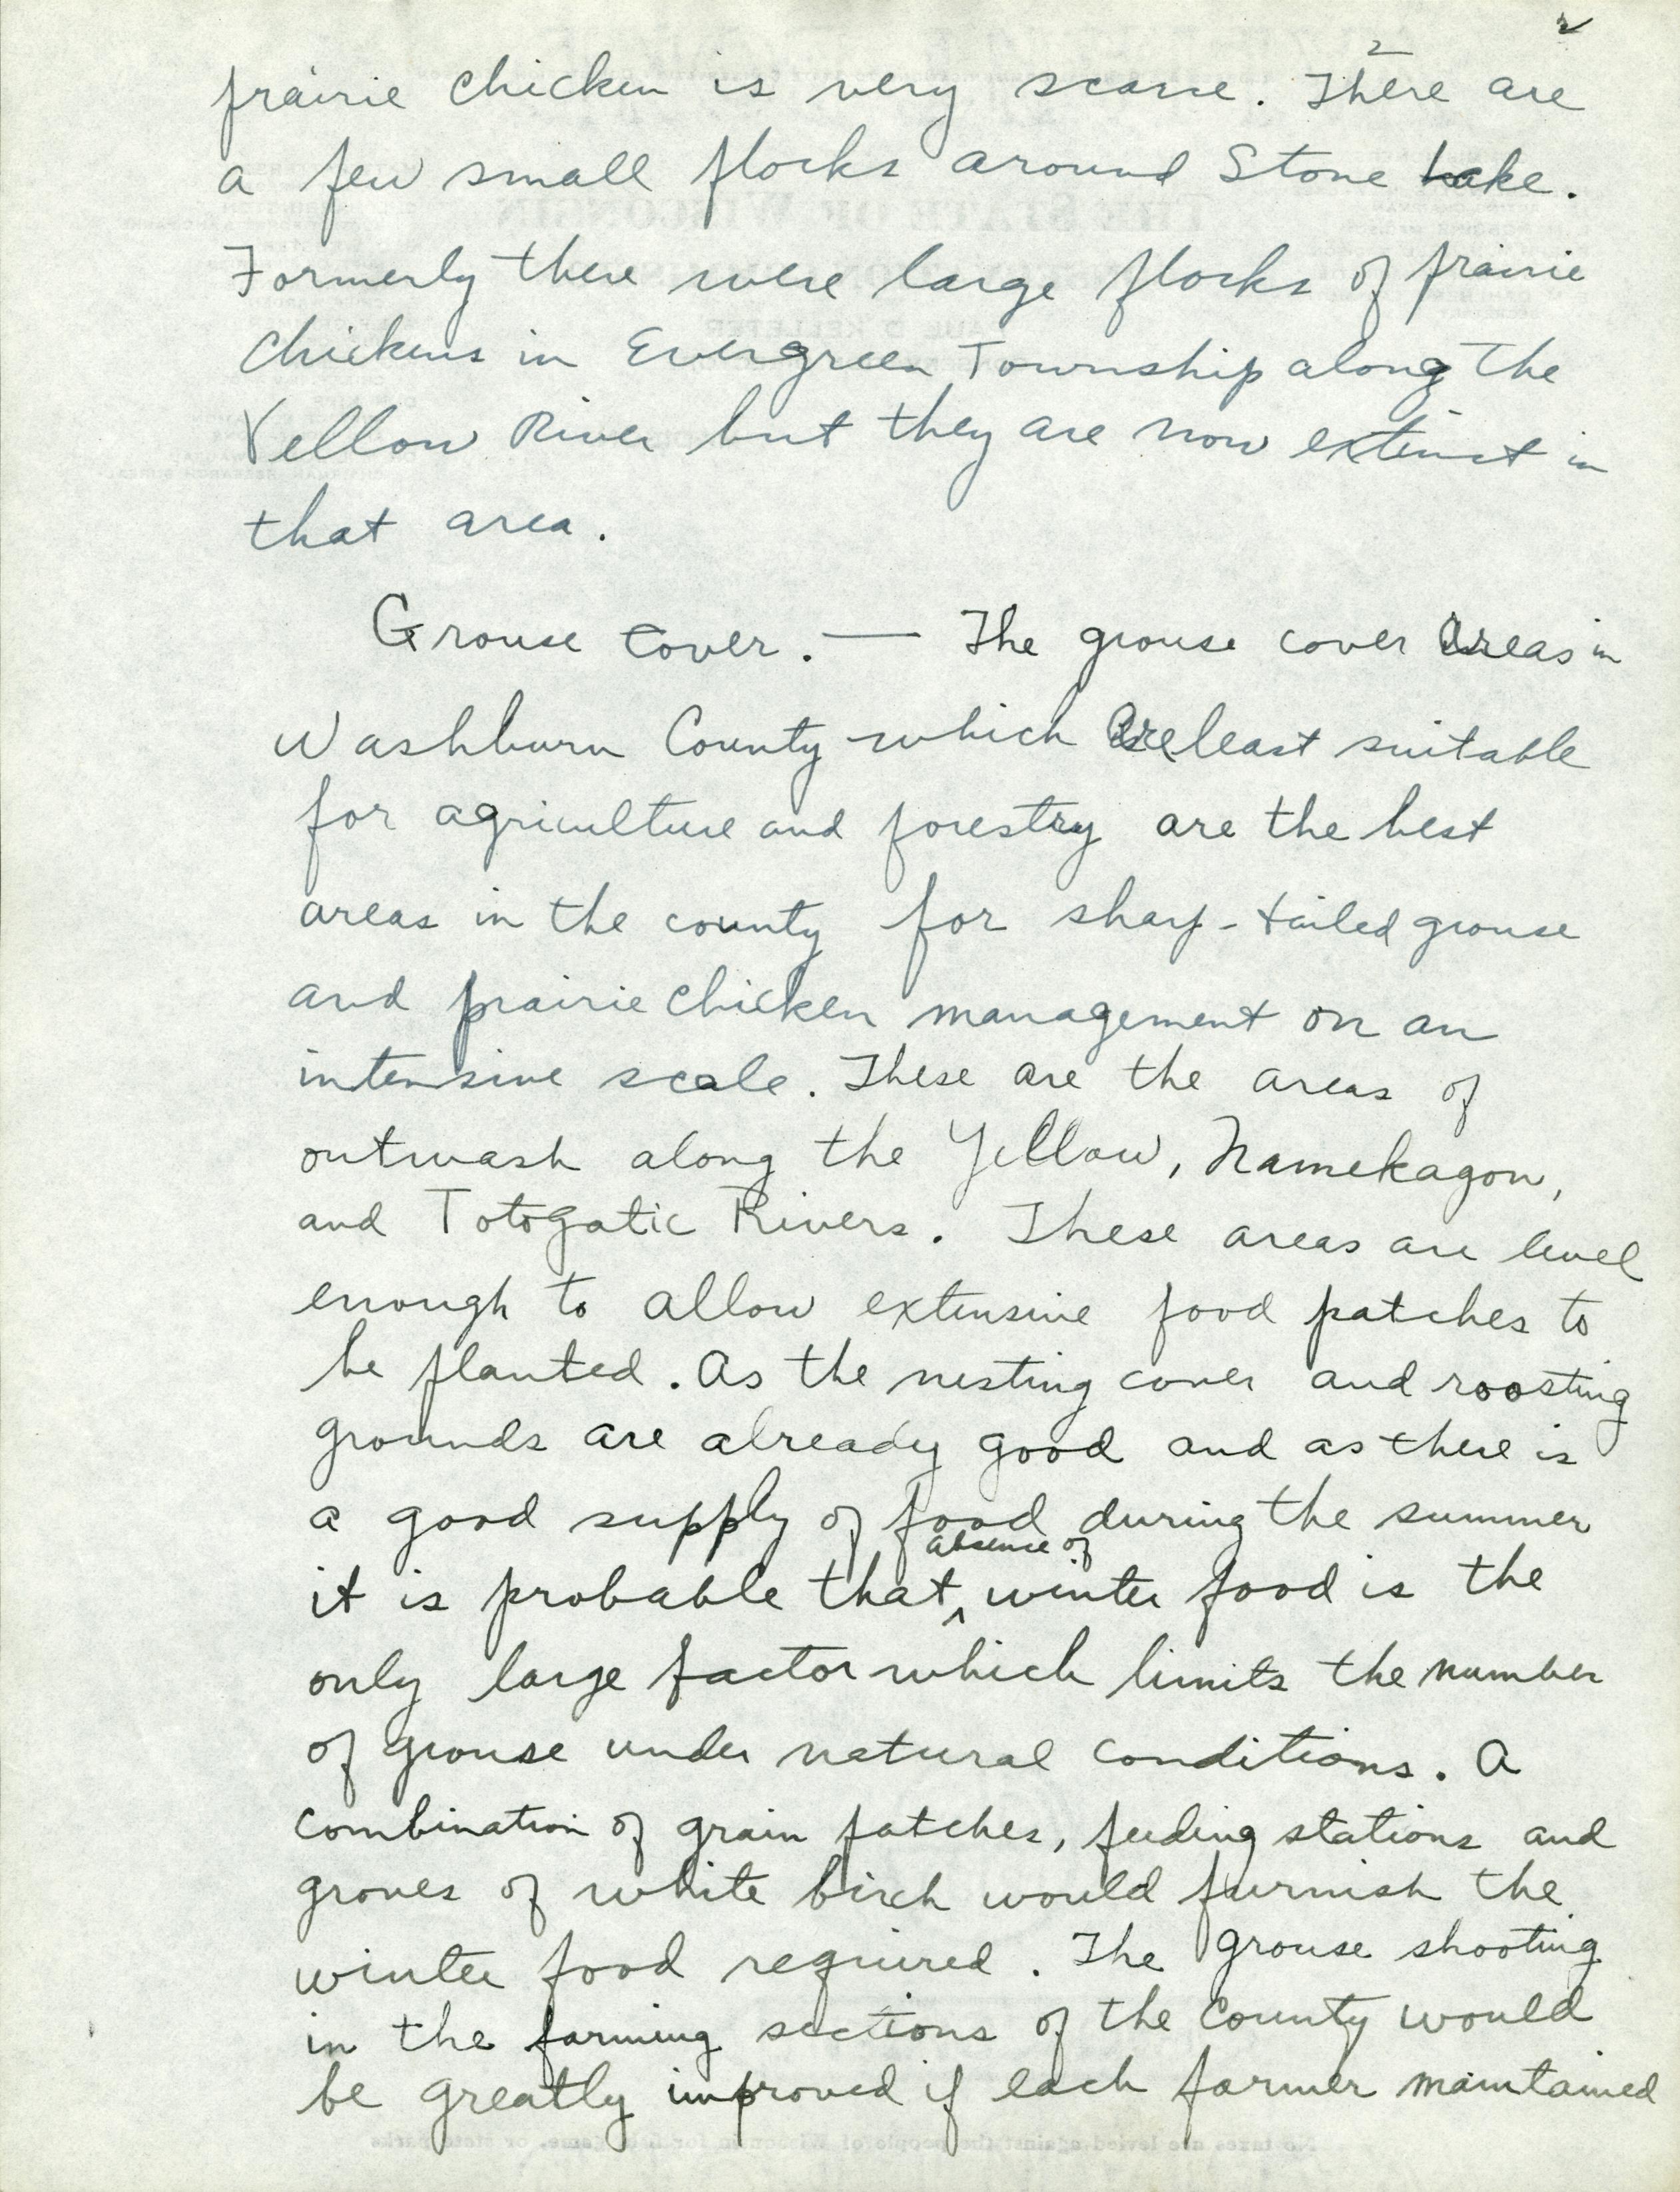 2
2
prairie chicken is very scarce. There are
a few small flocks around Stone Lake.
Formerly there were large flocks of prairie
chickens in Evergreen Township along the
Yellow River but they are now extinct in
that area.
Grouse Cover. — The grouse cover areas in
Washburn County which are least suitable
for agriculture and forestry are the best
areas in the county for sharp-tailed grouse
and prairie chicken management on an
intensive scale. These are the areas of
outwash along the Yellow, Namekagon,
and Totogatic Rivers. These areas are level
enough to allow extensive food patches to
be planted. As the nesting cover and roosting
grounds are already good and as there is
a good supply of food during the summer
absence of
it is probable that ‸ winter food is the
only large factor which limits the number
of grouse under natural conditions. A
combination of grain patches, feeding stations and
groves of white birch would furnish the
winter food required. The grouse shooting
in the farming sections of the County would
be greatly improved if each farmer maintained